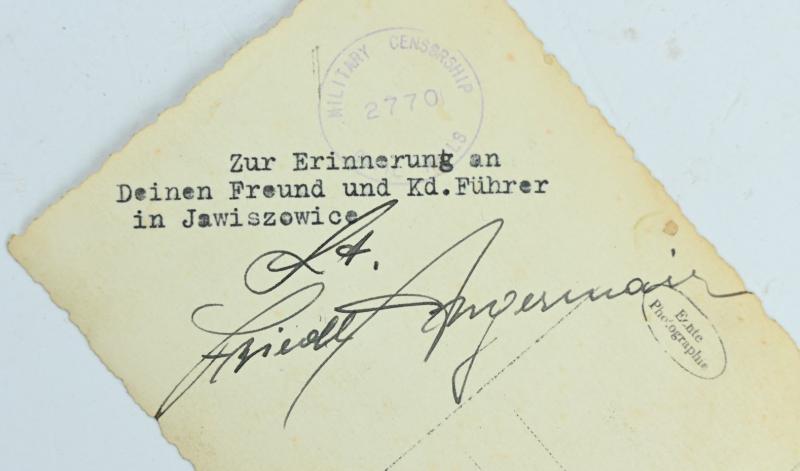 MILITARY CENSORSHIP
2770
Zur Erinnerung an
Deinen Freund und Kd.Führer
in Jawiszowice
Lt.
Friedl Angermair
Echte
Photographie